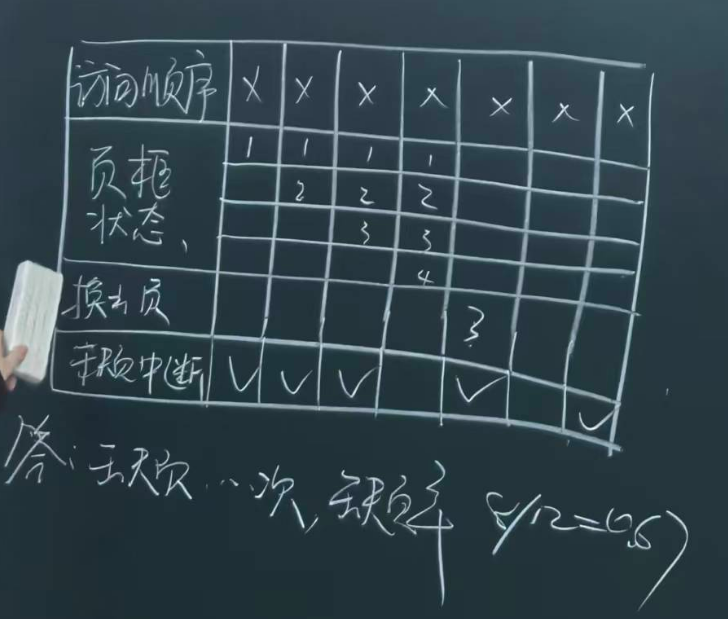 访问顺序 X X X X X X X
页框 1 1 1 1
状态、 2 2 2
3 3
4
换出页 3
缺页中断 ✓ ✓ ✓ ✓ ✓
答：缺页…次，缺页率